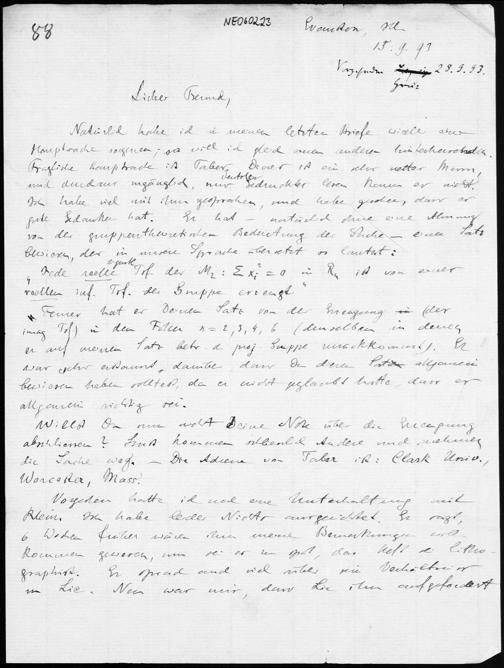 88
NE060223
Evanston, Ill.
15. 9. 93
28.9.93.
Lieber Freund,
Natürlich habe ich in meinem letzten Briefe wieder eine
Hauptsache vergessen; will ich gleich einen anderen
Fragliche Hauptsache ist Taber. Dieser ist ein sehr netter Mann,
und durchaus zugänglich, nur Deutsches Gedrucktes lesen kann er nicht.
Ich habe viel mit ihm gesprochen, und habe gesehen, dass er
gute Gedanken hat. Er hat – natürlich ohne eine Ahnung
von der gruppentheoretischen Bedeutung der Sache – einen Satz
bewiesen, der in unsere Sprache übersetzt so lautet:
"Jede reelle Trf. der M₂ : Σ xᵢ² = 0 in Rₙ ist von einer
reellen inf. Trf. der Gruppe erzeugt"
Ferner hat er Deinen Satz von der Erzeugung (der
imag Trf) in den Fällen n = 2, 3, 4, 6 (denselben in denen
er auf meinen Satz betr. d proj. Gruppe zurückkommt). Er
war sehr erstaunt, darüber dass Du diesen allgemein
bewiesen haben solltest, da er nicht geglaubt hatte, dass er
allgemein richtig sei.
Willst Du nun nicht Deine Note über die Erzeugung
abschliessen? Sonst kommen Andere und nehmen
die Sache weg. – Die Adresse von Taber ist: Clark Univ.,
Worcester, Mass.
hatte ich noch eine Unterhaltung mit
Klein. Ich habe leider Nichts ausgerichtet. Er sagt,
6 Wochen früher wären ihm meine Bemerkungen
kommen gewesen, nun sei er zu spät, das Heft d litho-
graphirt. Er sprach auch viel über sein Verhältnis
zu Lie. Neu war mir, dass Lie ihn aufgefordert